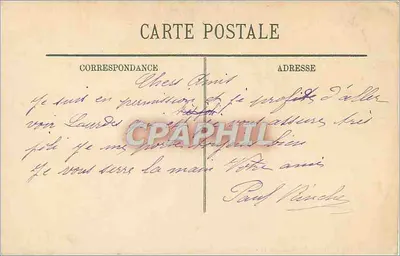 CARTE POSTALE
CORRESPONDANCE
ADRESSE
Chers Amis
Je suis en permission et je profite d'aller
voir Lourdes vous assure très
joli je me porte bien
Je vous serre la main Votre ami
Paul
CPAPHIL